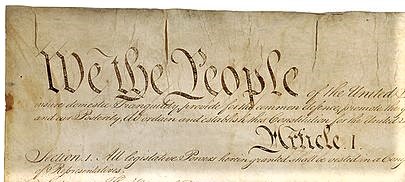 We the People of the United
insure domestic Tranquility, provide for the common defence, promote the
and our Posterity, do ordain and establish this Constitution for the United
Article. I.
Section. 1. All legislative Powers herein granted shall be vested in a Cong
of Representatives.